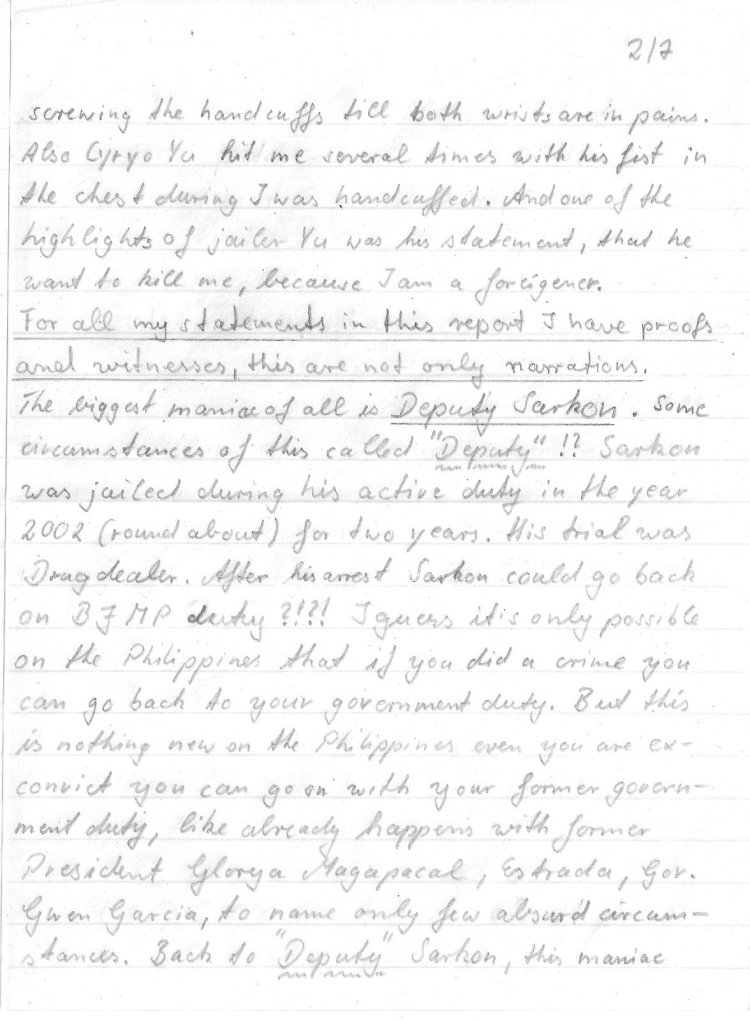 2/7
screwing the handcuffs till both wrists are in pains.
Also Cyryo Yu hit me several times with his fist in
the chest during I was handcuffed. And one of the
highlights of jailer Yu was his statement, that he
want to kill me, because I am a foreigener.
For all my statements in this report I have proofs
and witnesses, this are not only narrations.
The biggest maniac of all is Deputy Sarkon. Some
circumstances of this called "Deputy" !? Sarkon
was jailed during his active duty in the year
2002 (round about) for two years. His trial was
Drugdealer. After his arrest Sarkon could go back
on BJMP duty ?!?! I guess it's only possible
on the Philippines that if you did a crime you
can go back to your government duty. But this
is nothing new on the Philippines even you are ex-
convict you can go on with your former govern-
ment duty, like already happens with former
President Glorya Magapacal, Estrada, Gov.
Gwen Garcia, to name only few absurd circum-
stances. Back to "Deputy" Sarkon, this maniac